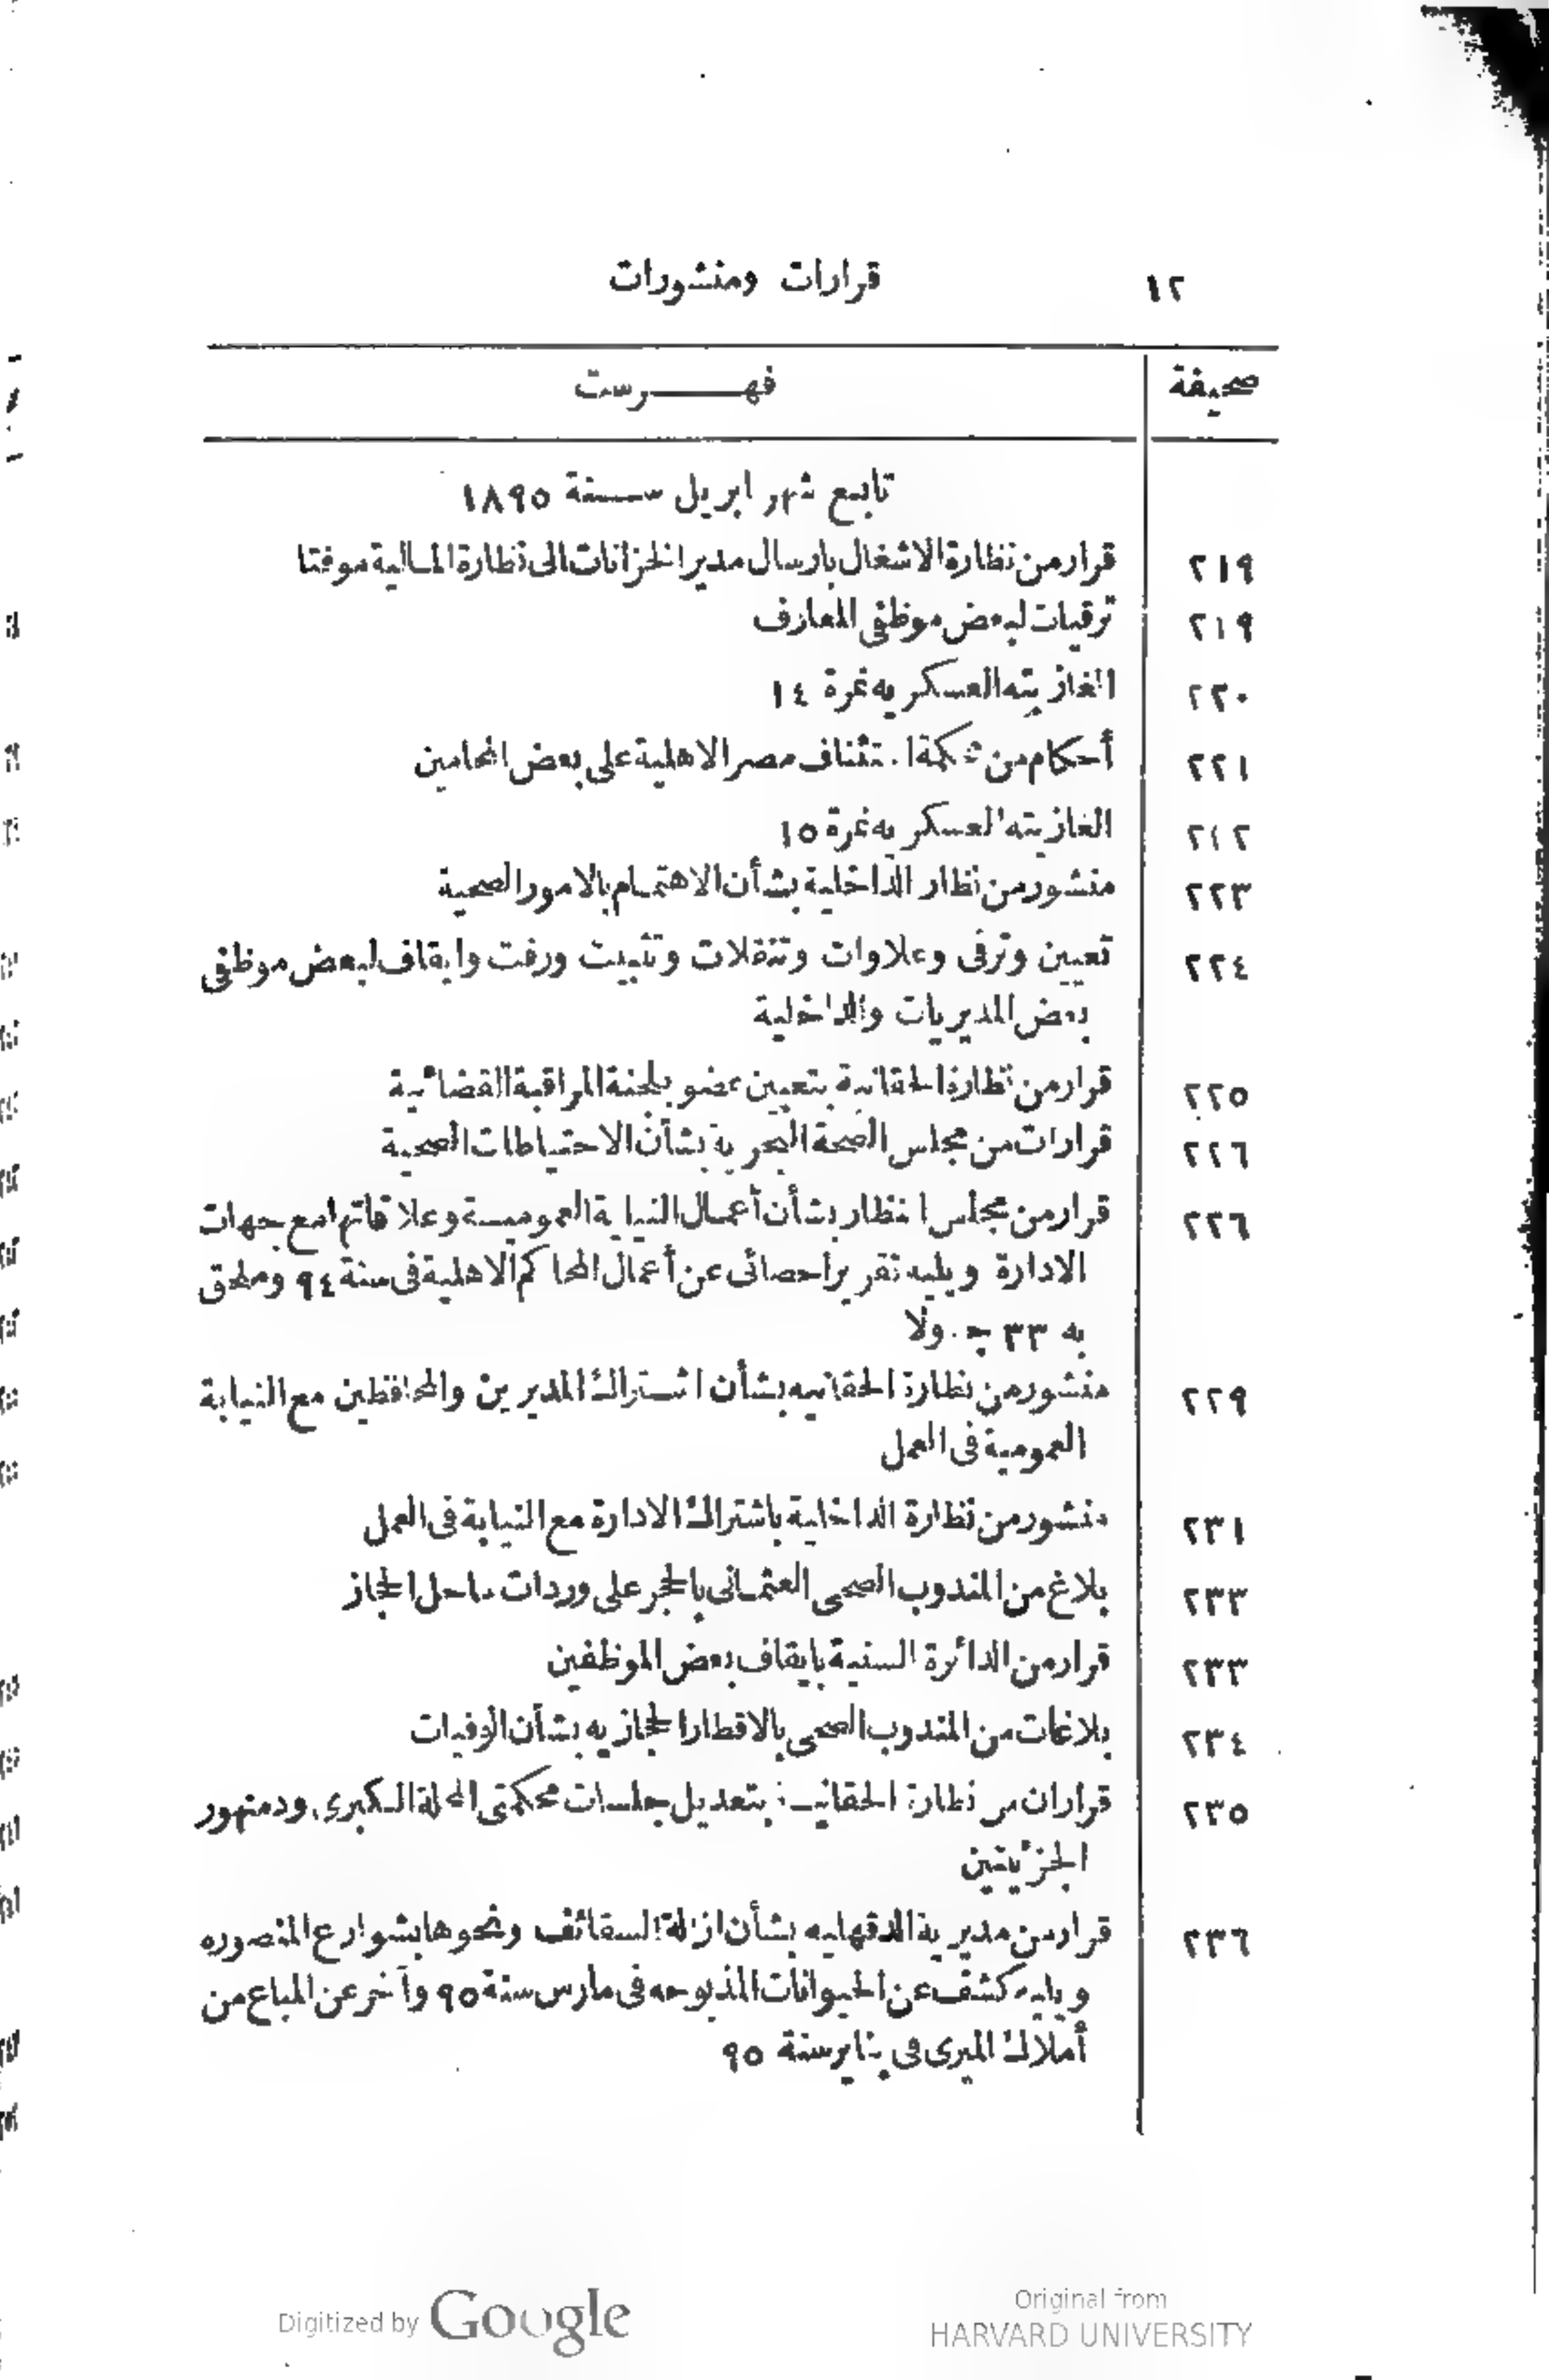 ١٢ قرارات ومنشورات
صحيفة فهرست
تابع شهر ابريل سنة ١٨٩٥
٢١٩ قرار من نظارة الاشغال بارسال مدير الخزانات الى نظارة المالية موقتا
٢١٩ ترقيات لبعض موظفى المعارف
٢٢٠ الغازيته العسكريه نمرة ١٤
٢٢١ أحكام من محكمة استئناف مصر الاهلية على بعض المحامين
٢٢٢ الغازيته العسكريه نمرة ١٥
٢٢٣ منشور من نظار الداخلية بشأن الاهتمام بالامور الصحية
٢٢٤ تعيين وترقى وعلاوات وتنقلات وتثبيت ورفت وايقاف لبعض موظفى
بعض المديريات والداخلية
٢٢٥ قرار من نظارة الحقانية بتعيين عضو بلجنة المراقبة القضائية
٢٢٦ قرارات من مجلس الصحة البحرية بشأن الاحتياطات الصحية
٢٢٦ قرار من مجلس النظار بشأن أعمال النيابة العمومية وعلاقاتها مع جهات
الادارة ويليه تقرير احصائى عن أعمال المحاكم الاهلية فى سنة ٩٤ وملحق
به ٣٣ جدولا
٢٢٩ منشور من نظارة الحقانيه بشأن اشتراك المديرين والمحافظين مع النيابة
العمومية فى العمل
٢٣١ منشور من نظارة الداخلية باشتراك الادارة مع النيابة فى العمل
٢٣٣ بلاغ من المندوب الصحى العثمانى بالحجر على وردات ساحل الحجاز
٢٣٣ قرار من الدائرة السنية بايقاف بعض الموظفين
٢٣٤ بلاغات من المندوب الصحى بالاقطار الحجازيه بشأن الوفيات
٢٣٥ قراران من نظارة الحقانية بتعديل جلسات محكمتى المحلة الكبرى ودمنهور
الجزئيتين
٢٣٦ قرار من مديرية الدقهليه بشأن ازالة السقائف ونحوها بشوارع المنصوره
ويليه كشف عن الحيوانات المذبوحه فى مارس سنة ٩٥ وآخر عن المباع من
أملاك الميرى فى يناير سنة ٩٥
Digitized by Google
Original from
HARVARD UNIVERSITY